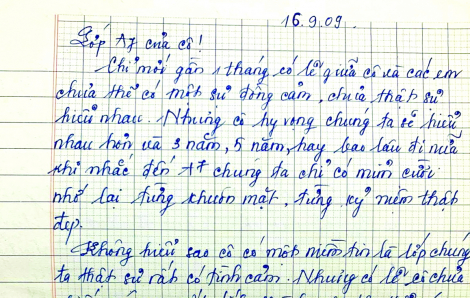 16.9.09.
Lớp A7 của cô!
Chỉ mới gần 1 tháng có lẽ giữa cô và các em
chưa thể có một sự đồng cảm, chưa thật sự
hiểu nhau. Nhưng cô hy vọng chúng ta sẽ hiểu
nhau hơn và 3 năm, 5 năm, hay bao lâu đi nữa
khi nhắc đến A7 chúng ta chỉ có mỉm cười
nhớ lại từng khuôn mặt, từng kỷ niệm thật
đẹp.
Không hiểu sao cô có một niềm tin là lớp chúng
ta thật sự rất có tình cảm. Nhưng có lẽ cô chưa